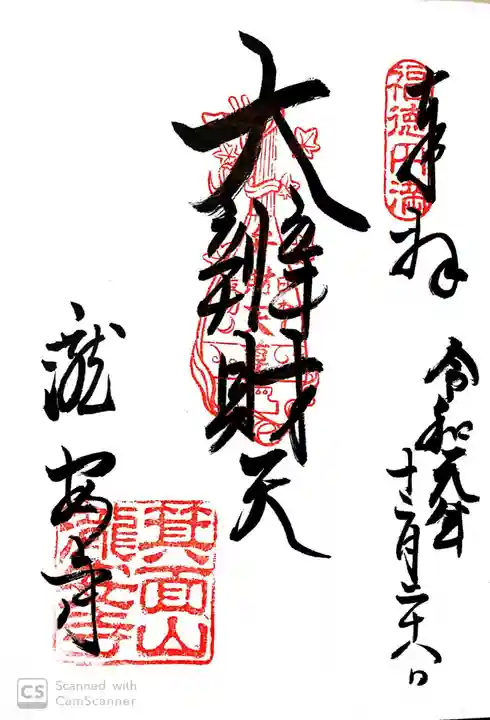 奉拝
福徳円満
令和元年
十二月二十八日
大辨財天
瀧安寺
箕面山
瀧安寺
CS Scanned with
CamScanner